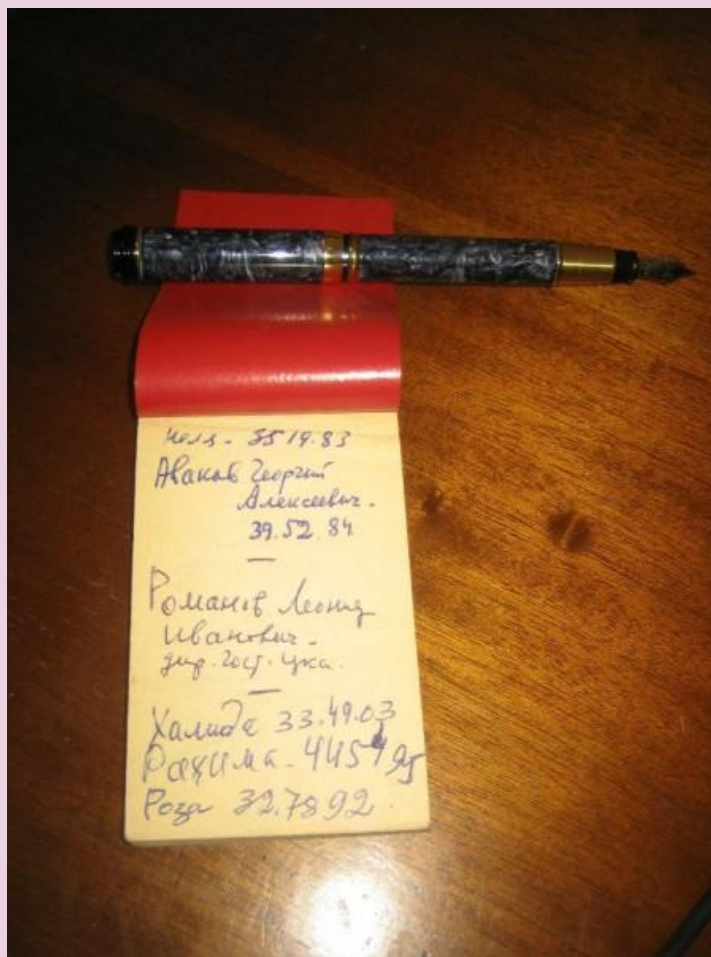 Неля - 35 19.83
Аванов Георгий
Алексеевич.
39.52.84
Романов Леонид
Иванович -
дир. гост. цка.
Халида 33.49.03
Рахима - 4454 95
Роза 32.78 92.